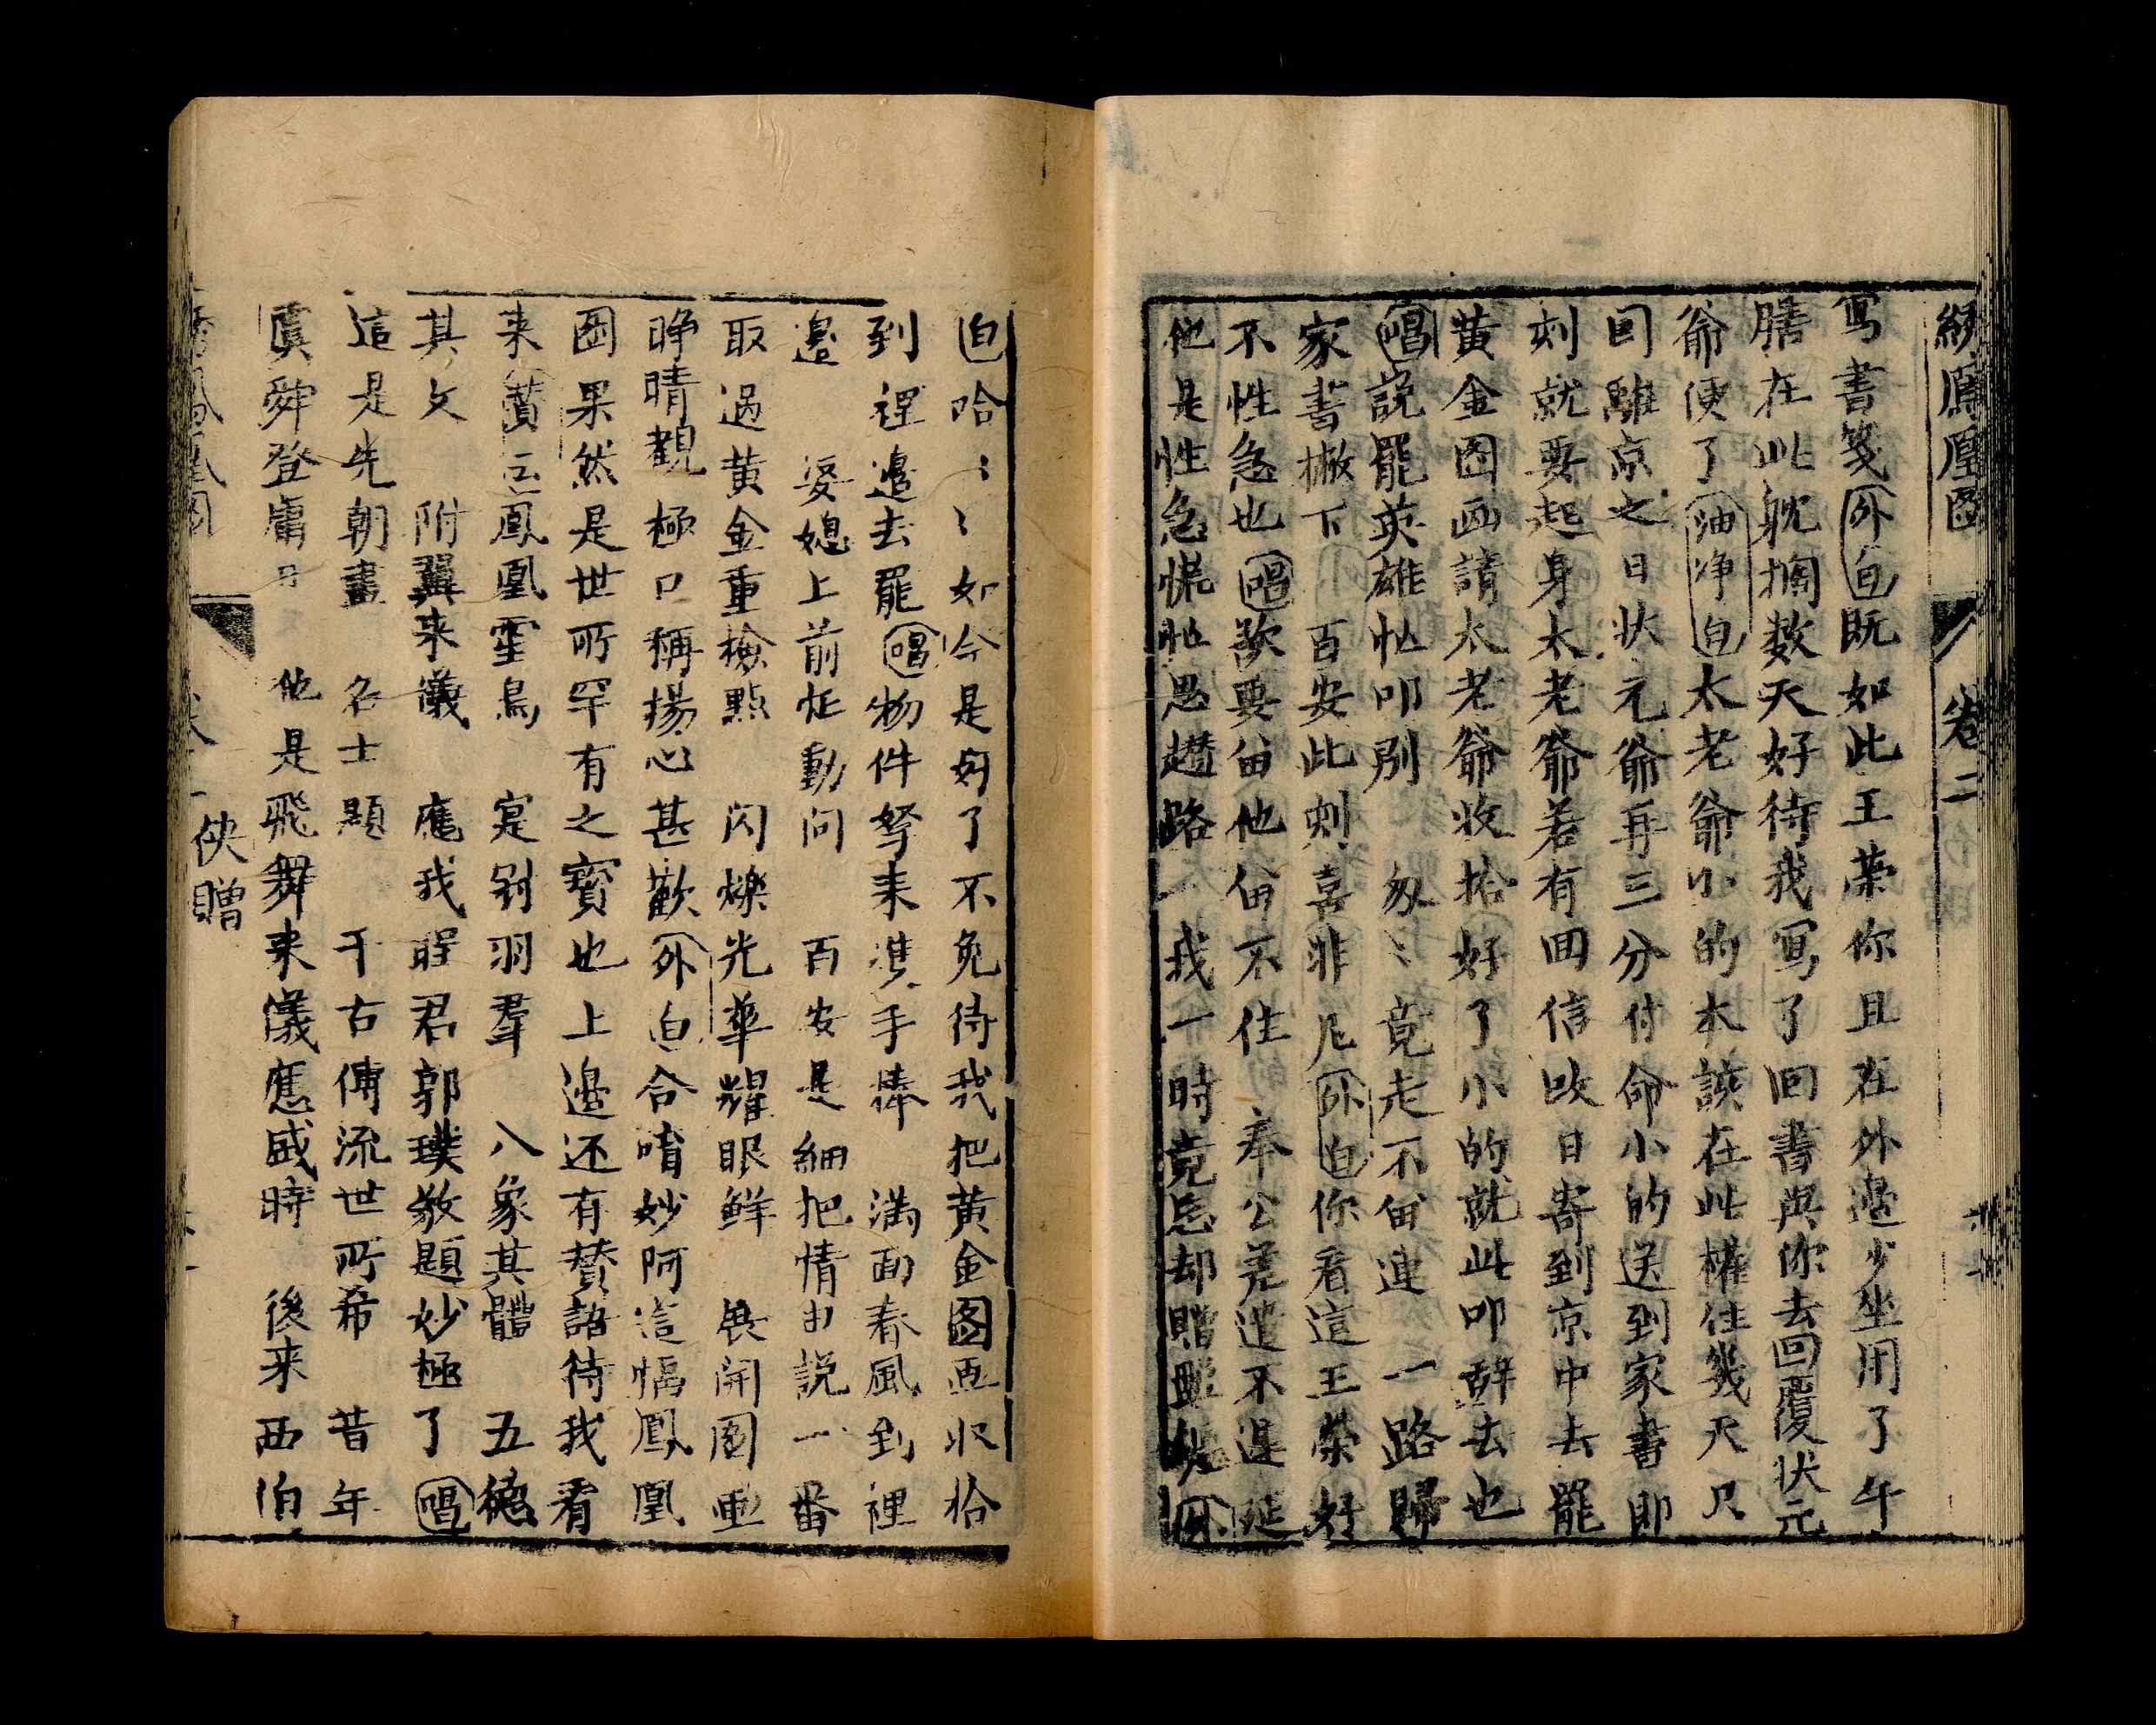 綉鳳凰図 卷二
寫書箋外白既如此王荣你且在外邉少坐用了午
膳在此躭擱数天好待我寫了回書與你去回覆状元
爺便了油净白太老爺小的本該在此權住幾天只
因離京之日状元爺再三分付命小的送到家書即
刻就要起身太老爺若有回信改日寄到京中去罷
黄金图画請太老爺收拾好了小的就此叩辞去也
唱説罷英雄忙叩别 匆〻竟走不留連 一路歸
家書撇下 百安此刻喜非凡外白你看這王荣好
不性急也唱欲要留他留不住 奉公差遣不遲延
他是性急慌忙思趲路 我一時竟忘却贈
白哈〻〻如今是好了不免待我把黄金图画収拾
到裡邉去罷唱物件拏来雙手捧 滿面春風到裡
邉 婆媳上前忙動问 百安是細把情由説一番
取過黄金重檢點 闪爍光華耀眼鮮 展開图画
睁睛觀 極口稱揚心甚歡外白合唷妙阿這幅鳳凰
图果然是世所罕有之寳也上邉还有賛語待我看
来賛云鳳凰霊鳥 寔别羽羣 八象其體 五德
其文 附翼来儀 應我聖君郭璞敬題妙極了唱
這是先朝畫 名士題 千古傳流世所希 昔年
虞舜登庸日 他是飛舞来儀應感時 後来西伯
綉鳳凰図 卷二 俠贈